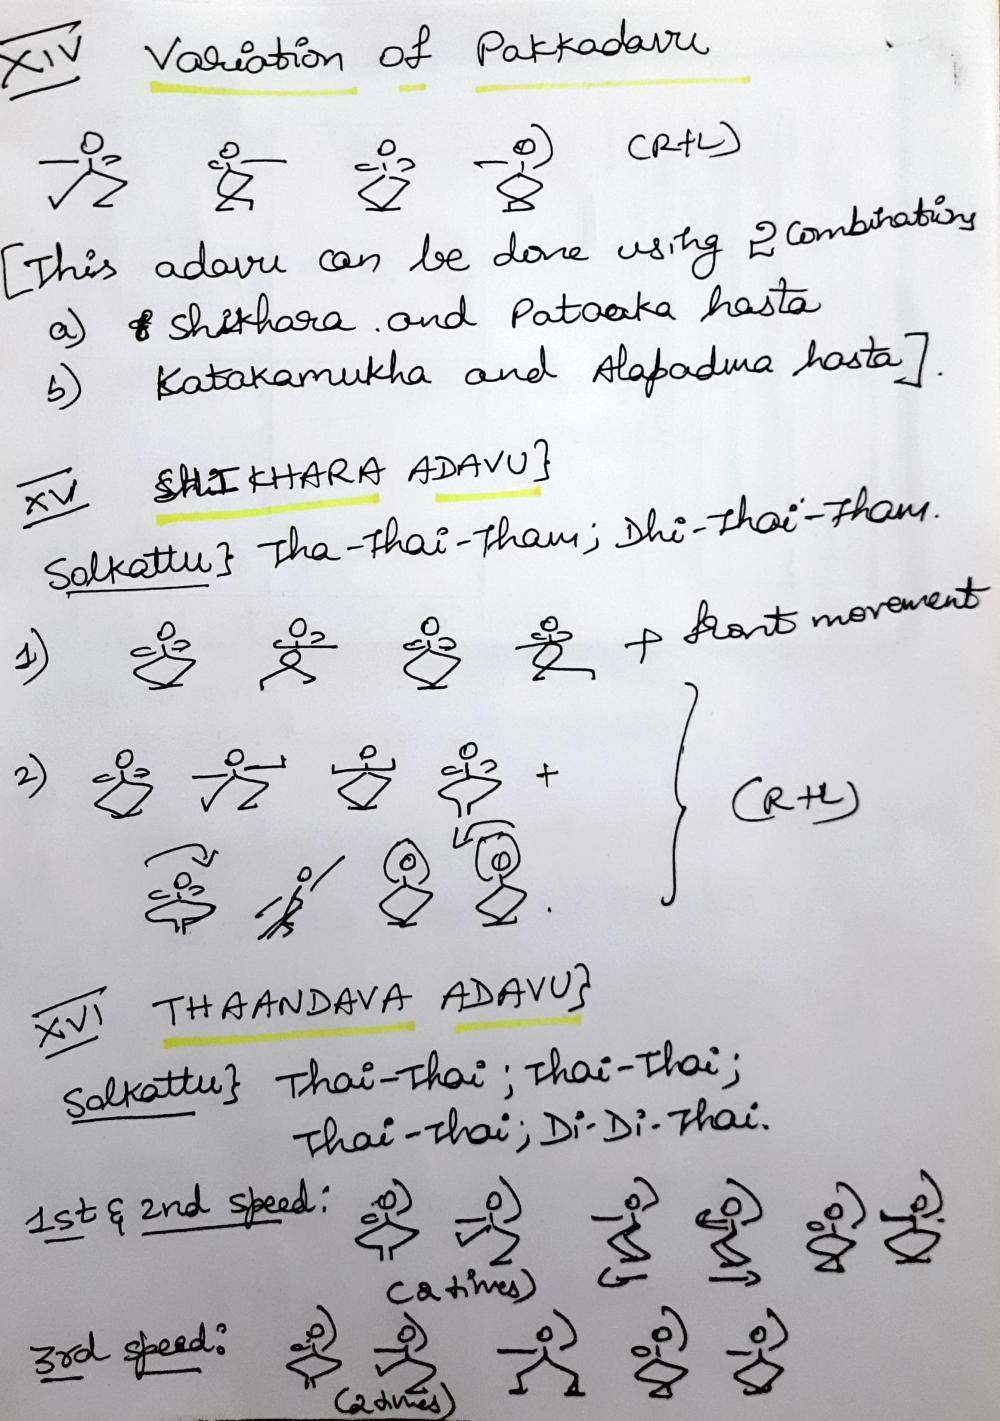 XIV Variation of Pakkadavu
(R+L)
[This adavu can be done using 2 combinations
a) shikhara and Pataaka hasta
b) Katakamukha and Alapadma hasta].
XV SHIKHARA ADAVU}
Solkattu} Tha-Thai-Tham; Dhi-Thai-Tham.
1) + front movement
2) +
(R+L)
XVI THAANDAVA ADAVU}
Solkattu} Thai-Thai; Thai-Thai;
Thai-Thai; Di-Di-Thai.
1st & 2nd speed:
(2 times)
3rd speed:
(2 times)